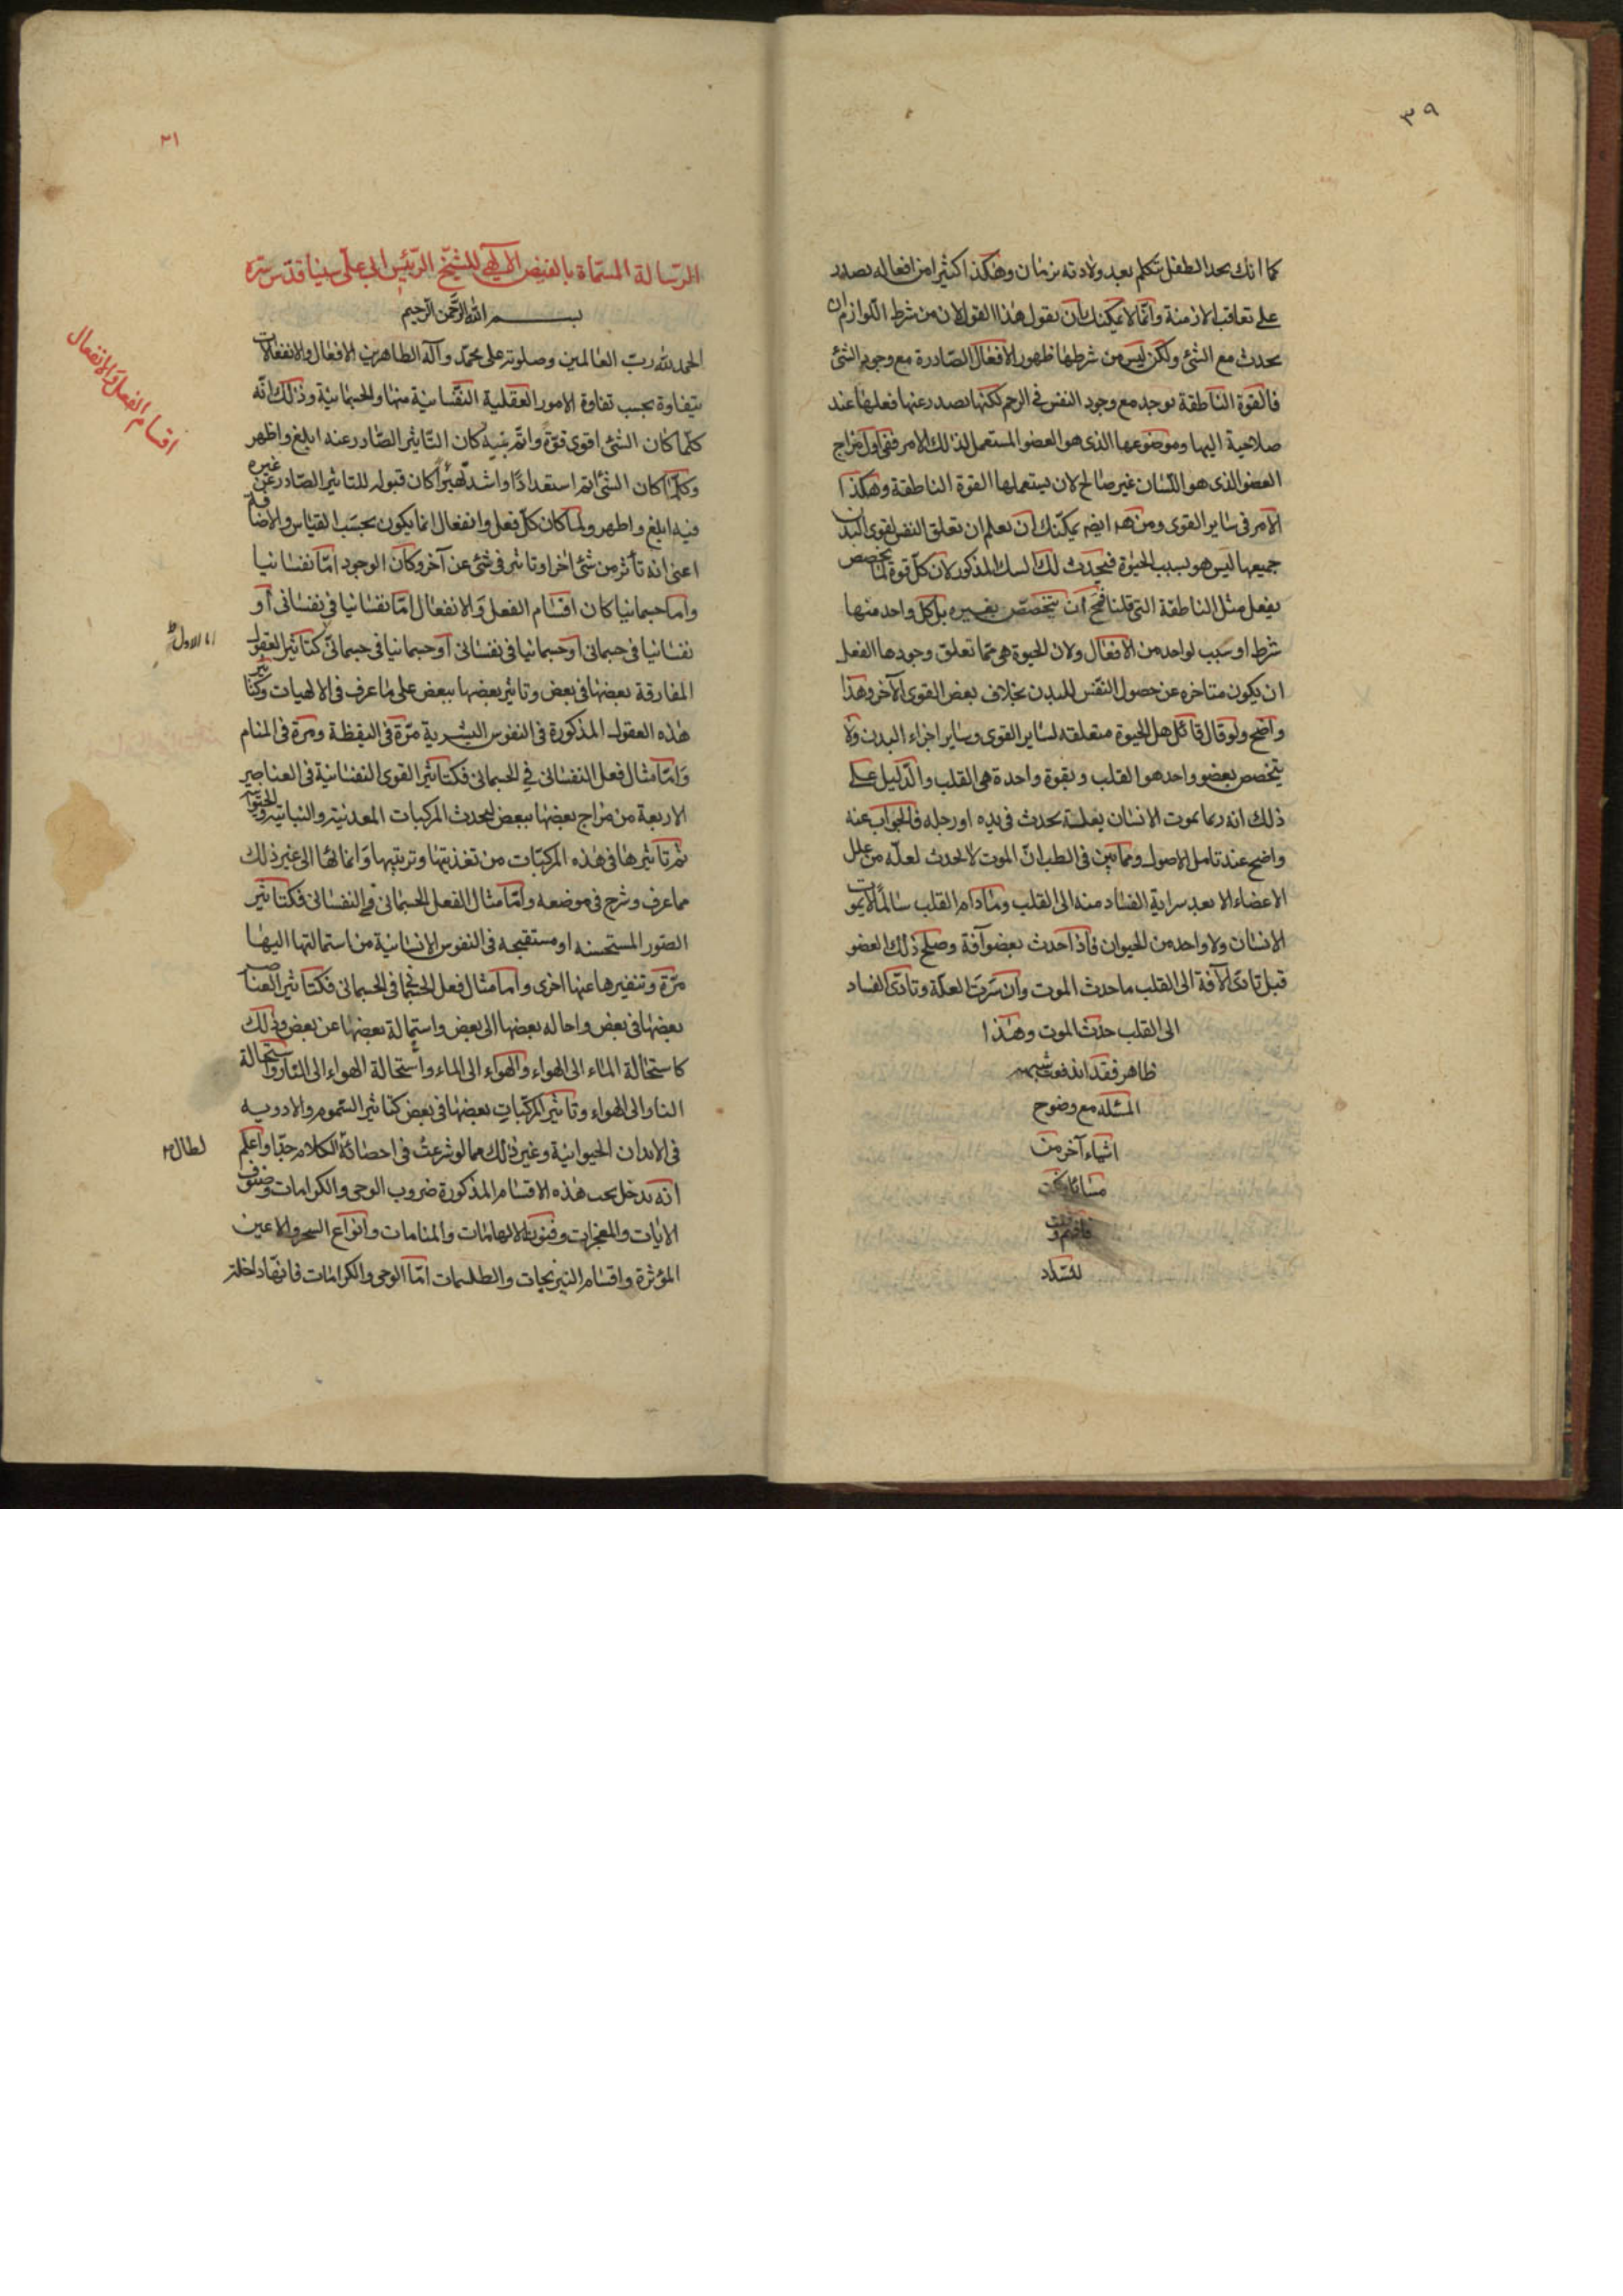 ٣٩
كما انك تجد الطفل يتكلم بعد ولادته بزمان وهكذا اكثر من افعاله يصدر
على تعاقب الازمنة وانما لا يمكنك بان يقول هذا القول لان من شرط اللوازم ان
يحدث مع الشئ ولكن ليس من شرطها ظهور الافعال الصادرة مع وجود الشئ
فالقوة الناطقة توجد مع وجود النفس فى الرحم لكنها تصدر عنها فعلها عند
صلاحية اليها وموضوعها الذى هو العضو المستعمل لذلك الامر ففى اول مزاج
العضو الذى هو اللسان غير صالح لان يستعملها القوة الناطقة وهكذا
الامر فى ساير القوى ومن هذ ايضا يمكنك ان تعلم ان تعلق النفس لقوى البدن
جميعها ليس هو بسبب الحيوة فيحدث لك الشك المذكور لان كل قوة لما تخصص
بفعل مثل الناطقة التى قلنا فيجب ان يتخصص بغيره بل كل واحد منها
شرط او سبب لواحد من الافعال ولان الحيوة هى مما تعلق وجودها الفعل
ان يكون متاخره عن حصول النفس للبدن بخلاف بعض القوى الآخر وهذا
واضح ولو قال قائل هل الحيوة متعلقه لساير القوى وساير اجزاء البدن ولا
يتخصص بعضو واحد هو القلب وبقوة واحدة هى القلب والدليل على
ذلك انه ربما يموت الانسان بعلة يحدث فى يده او رجله فالجواب عنه
واضح عند تامل الاصول ومما تبين فى الطب ان الموت لا يحدث لعله من علل
الاعضاء الا بعد سراية الفساد منه الى القلب ومادام القلب سالما لا يموت
الانسان ولا واحد من الحيوان فاذا حدث بعضو آفة وصلح ذلك العضو
قبل تادى الآفة الى القلب ما حدث الموت وان سرت العلة وتادى الفساد
الى القلب حدث الموت وهذا
ظاهر فقد اندفعت شبهه
المسئله مع وضوح
اشياء آخر من
مسائل
لتسداد
٢١
الرسالة المسماة بالفيض الالهى للشيخ الرئيس ابى على سينا قدس سره
بسم الله الرحمن الرحيم
الحمد لله رب العالمين وصلوته على محمد وآله الطاهرين الافعال والانفعالات
يتفاوة بحسب تفاوة الامور العقلية النفسانية منها والجسمانية وذلك انه
كلما كان الشئ اقوى قوة واتم كان التاثير الصادر عنه ابلغ واظهر
وكلما كان الشئ اتم استعدادا واشد تهيئوا كان قبوله للتاثير الصادر عن غيره
فيه ابلغ واظهر ولما كان كل فعل وانفعال انما يكون بحسب القياس والاضافة
اعنى انه تأثر من شئ آخر او تاثير فى شئ عن آخر وكان الوجود اما نفسانيا
واما جسمانيا كان اقسام الفعل والانفعال اما نفسانيا فى نفسانى أو
نفسانيا فى جسمانى او جسمانيا فى نفسانى أو جسمانيا فى جسمانى كتاثير العقول
اما الاول
المفارقة بعضها فى بعض وتاثير بعضها ببعض على ما عرف فى الالهيات وكتاثير
هذه العقول المذكورة فى النفوس البشرية مرة فى اليقظة ومرة فى المنام
واما مثال فعل النفسانى فى الجسمانى فكتاثير القوى النفسانية فى العناصر
الاربعة من مزاج بعضها ببعض ليحدث المركبات المعدنية والنباتية والحيوانية
ثم تاثيرها فى هذه المركبات من تغذيتها وتربيتها وانمائها الى غير ذلك
مما عرف وشرح فى موضعه واما مثال الفعل الجسمانى فى النفسانى فكتاثير
الصور المستحسنه او مستقبحه فى النفوس الانسانية من استمالتها اليها
مرة وتنفيرها عنها اخرى واما مثال فعل الجسمانى فى الجسمانى فكتاثير العناصر
بعضها فى بعض واحاله بعضها الى بعض واستمالة بعضها عن بعض وذلك
كاستحالة الماء الى الهواء والهواء الى الماء واستحالة الهواء الى النار واستحالة
النار الى الهواء وتاثير المركبات بعضها فى بعض كتاثير السموم والادويه
فى الابدان الحيوانية وغير ذلك مما لو شرعت فى احصائه الكلام جدا واعلم
لطال
انه يدخل تحت هذه الاقسام المذكورة ضروب الوحى والكرامات وصنوف
الايات والمعجزات وفنون الالهامات والمنامات وانواع السحر والاعين
المؤثرة واقسام النيرنجات والطلسمات اما الوحى والكرامات فانها داخلة
اقسام الفعل والانفعال